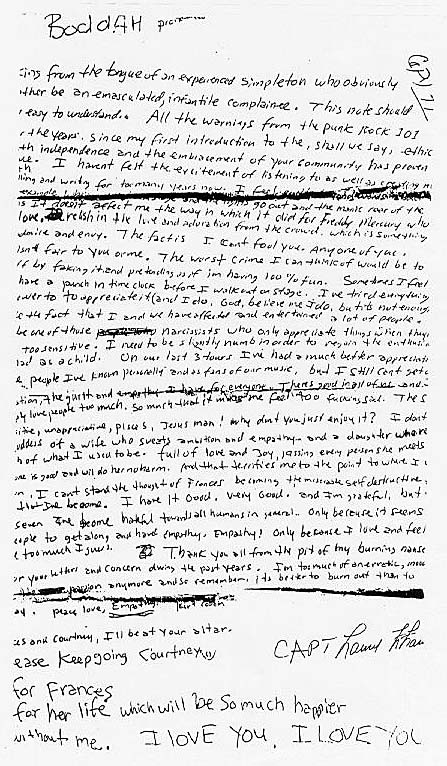 BoddAH
ing from the tongue of an experienced simpleton who obviously
ther be an emasculated, infantile complainee. This note should
easy to understand. All the warnings from the punk rock 101
the years. Since my first introduction to the, shall we say, ethic
th independence and the embracement of your community has proven
ue. I haven't felt the excitement of listening to as well as creating m
hing and writing for too many years now. I feel
go out and the manic roar of the
doesn't affect me the way in which it did for Freddy Mercury who
love, relish in the love and adoration from the crowd. which is something
dmire and envy. The fact is I can't fool you. Any one of you.
isnt fair to you or me. The worst crime I can think of would be to
ff by faking it and pretending as if im having 100% fun. Sometimes I feel
have a punch in time clock before I walk out on stage. I've tried everything
ower to appreciate it (and I do, God, believe me I do, but it's not enough
the fact that I and we have affected and entertained a lot of people.
be one of those narcissists who only appreciate things when they
too sensitive. I need to be slightly numb in order to regain the enthusia
had as a child. On our last 3 tours I've had a much better appreciati
people I've known personally and as fans of our music, but I still can't get o
ation, the guilt and empathy I have for everyone. There's good in all of us and i
ply love people too much. So much that it makes me feel too fucking sad. The s
itive, unappreciative, pisces, Jesus man! Why don't you just enjoy it? I don't
oddess of a wife who sweats ambition and empathy and a daughter who re
h of what I used to be. full of love and Joy, kissing every person she meets
one is good and will do her no harm. And that terrifies me to the point to where I
n. I can't stand the thought of Frances becoming the miserable self destructive,
that I've become. I have it Good. Very Good. and I'm grateful, but
seven I've become hateful towards all humans in general. Only because it seems
eople to get along and have empathy. Empathy! Only because I love and feel
e too much I guess. Thank you all from the pit of my burning nause
or your letters and concern during the past years. I'm too much of an erratic, moo
passion anymore and so remember, its better to burn out than to
ay. peace, love, Empathy. Kurt Cobain
es and Courtney, I'll be at your altar.
ease Keep going Courtney
CAPT
for Frances
for her life which will be so much happier
without me. I LOVE YOU. I LOVE YOU